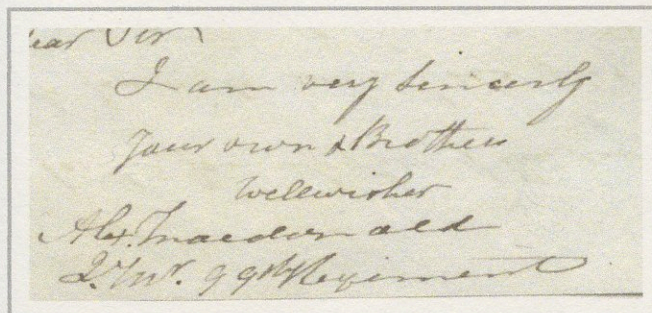 ear Sir
I am very sincerely
your own & Brothers
Wellwisher
Alex. Macdonald
Qr. Mr. 99th Regiment